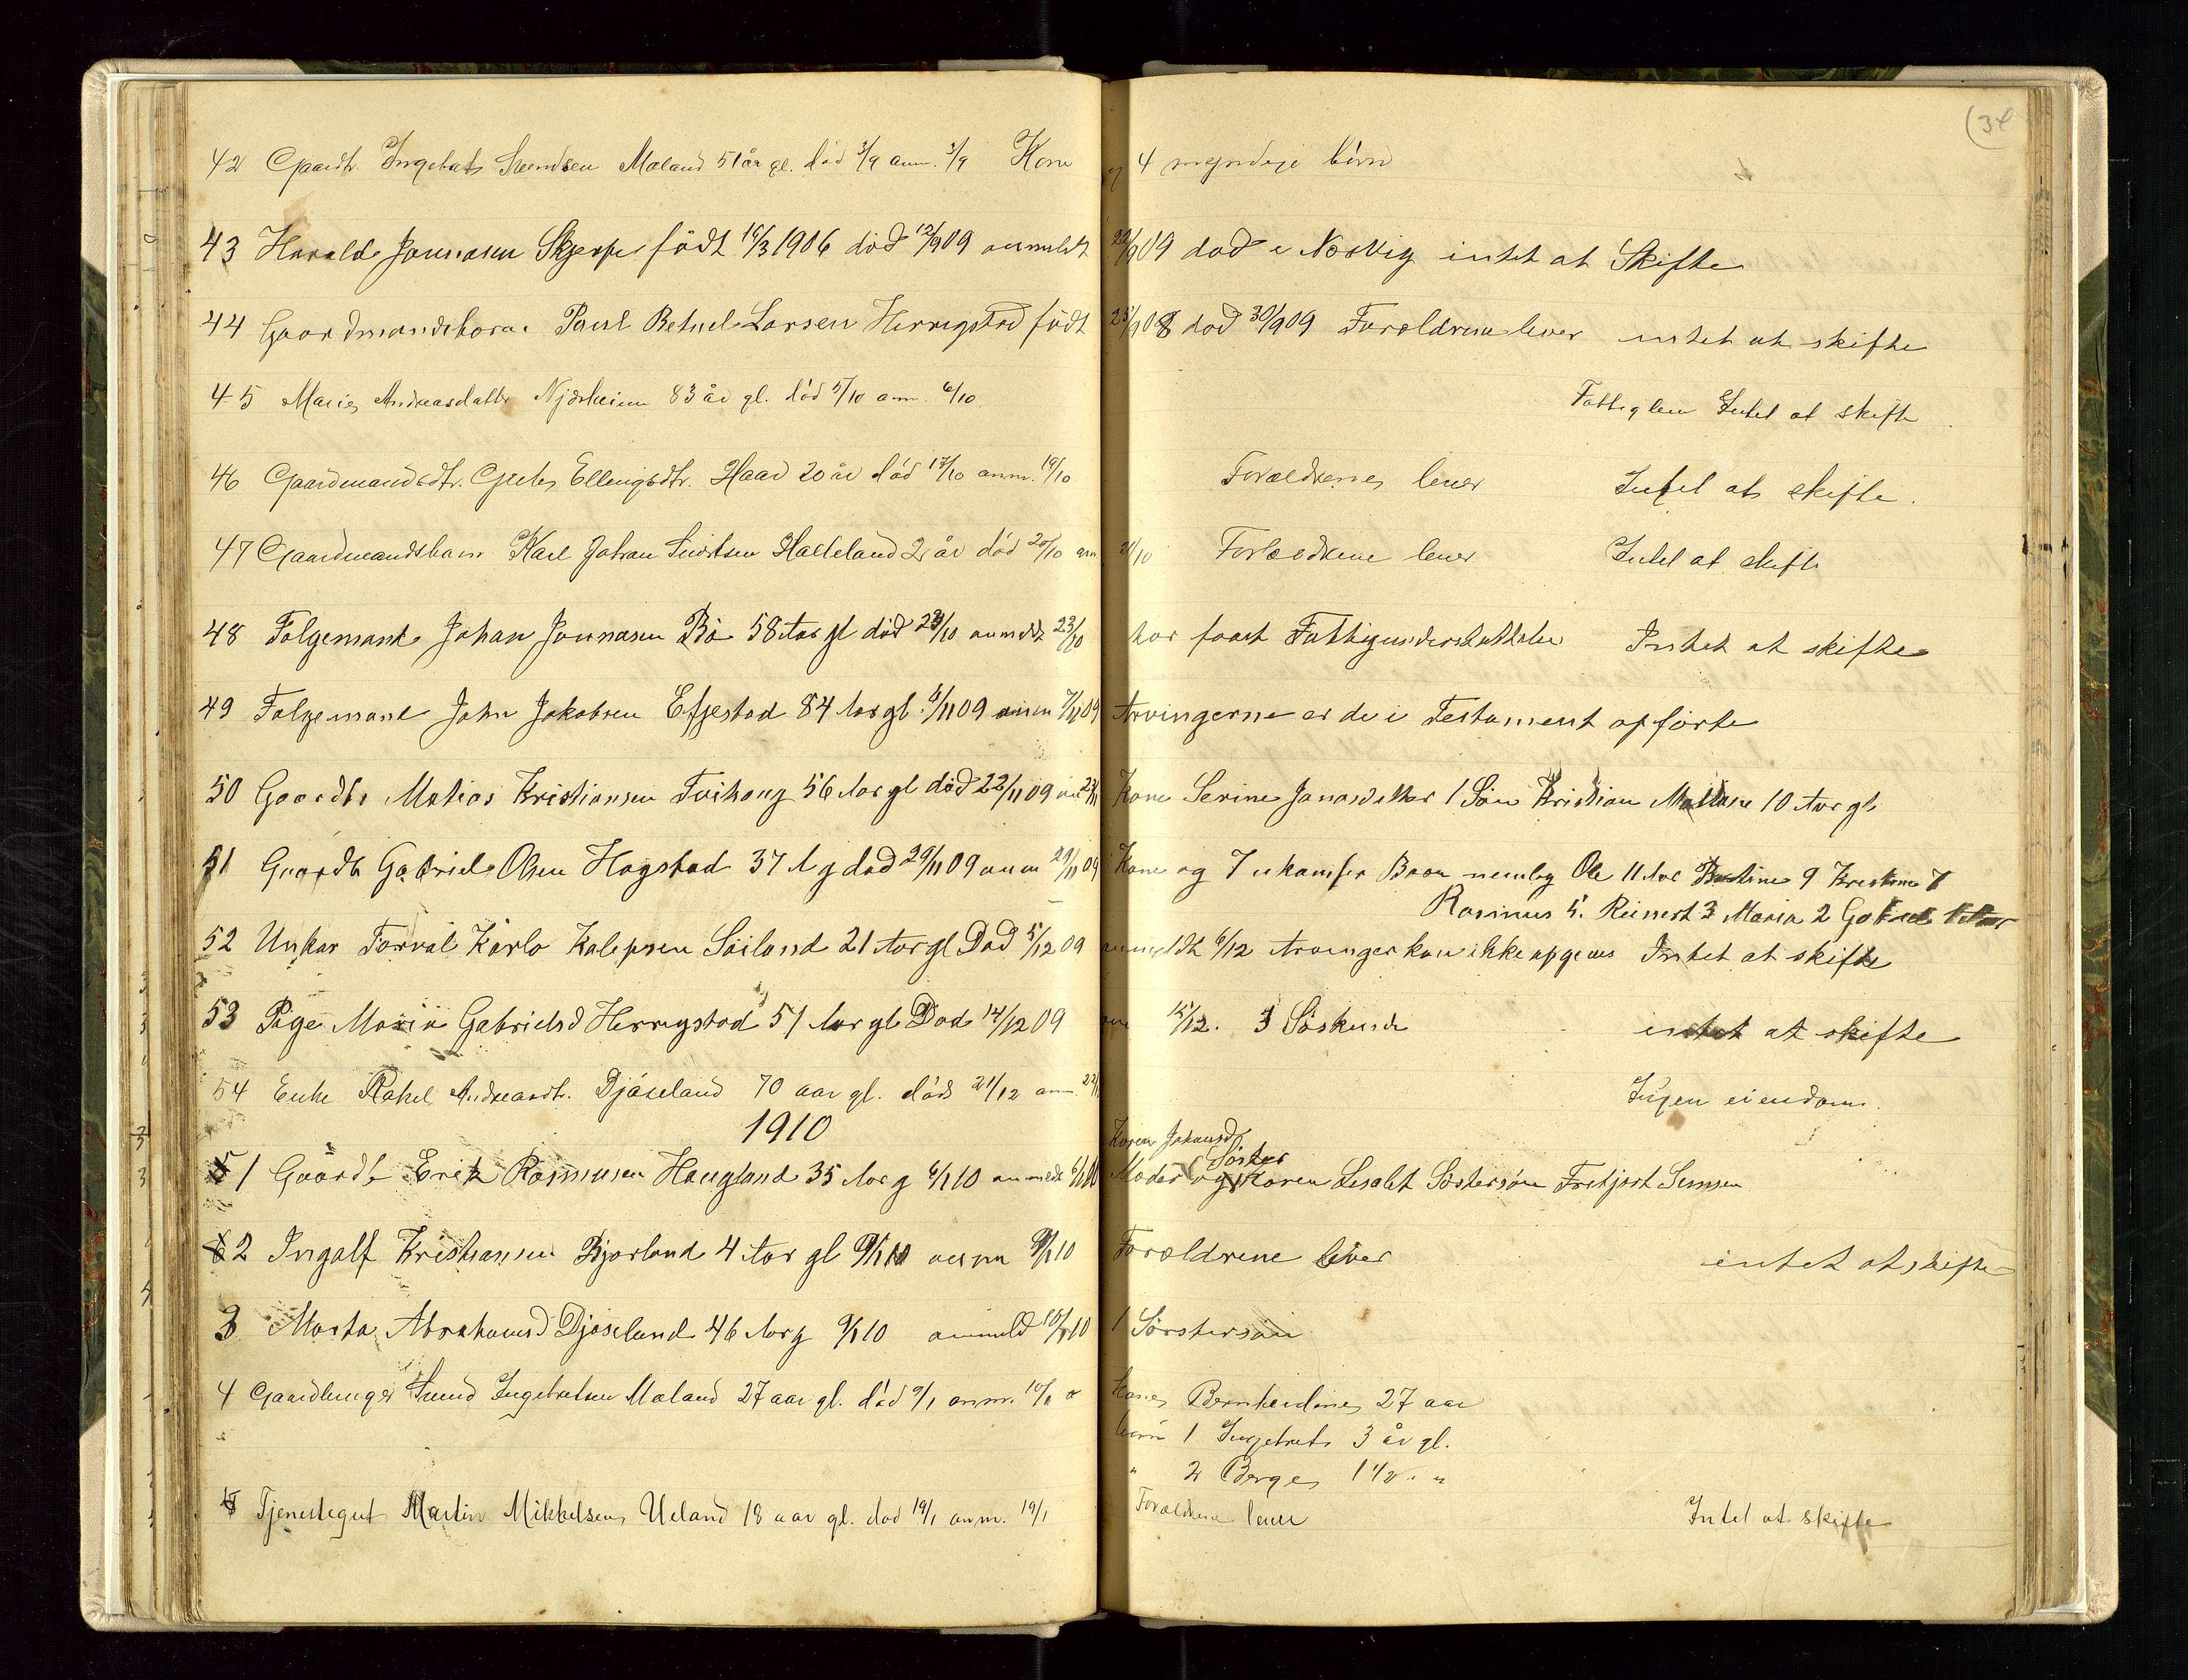 (34
42 Gaardbr. Ingebret Svendsen Mæland 51 år gl. död 3/9 anm. 3/9 Kone og 4 myndige börn
43 Harald Jonnasen Skjerpe födt 16/3 1906 död 12/9 09 anmeldt 22/9 09 död i Narvig intet at Skifte
44 Gaardmandsbarn Paul Betuel Larsen Herrigstad födt 25/9 08 död 30/9 09 Forældrene lever intet at skifte
45 Marie Andreasdatter Njærheim 83 år gl. död 5/10 anm. 6/10 Fattiglem Intet at skifte
46 Gaardmandsdtr. Ellingsdtr. Haar 20 år död 17/10 anm. 19/10 Forældrene lever Intet at skifte.
47 Gaardmandsbarn Karl Johan Sivertsen Hatteland 2 år död 20/10 anm 21/10 Forældrene lever Intet at skifte
48 Folgemand Johan Jonnasen Bö 58 Aar gl död 23/10 anmeldt 23/10 har faaet Fattigunderstøttelse Intet at skifte
49 Folgemand John Jakobsen Efjestad 84 Aar gl. 6/11 09 anm 7/11 09 Arvingerne er de i Testament opförte
50 Gaardbr Matias Kristiansen Tuihaug 56 Aar gl död 22/11 09 an 23/11 Kone Serine Janasdatter 1 Sön Kristian Matiasen 10 Aar gl
51 Gaardb Gabriel Olsen Hogstad 37 A g död 29/11 09 anm 29/11 09 Kone og 7 Born nemlig Ole 11 Aar 9 Kristine 7
Rasmus 5. Reinert 3 Maria 2 Gabriel
52 Unkar Torval Karlo Kalepsen Sæland 21 Aar gl Död 5/12 09 anmeldt 6/12 Arvinger kan ikke opgives Intet at skifte
53 Pige Maria Gabrielsd Herrigstad 51 Aar gl Död 14/12 09 anm 15/12. 3 Söskende intet at skifte
54 Enke Rakel Andreasdtr. Djöseland 70 aar gl. död 21/12 anm. 22/12 Ingen eiendom.
1910
1 Gaardb Erik Rasmusen Haugland 35 Aar g 6/1 10 anmeldt 6/1 10 Karen Johansd
Moder og Söster Karen Lisabet Söstersön Fritjort Simsen
2 Ingalf Kristiansen Bjorland 4 Aar gl 9/1 10 anm 9/1 10 Forældrene lever intet at skifte
3 Marta Abrahamsd Djöseland 46 Aar g 9/1 10 anmeld 10/1 10 1 Söstersön
4 Gaardbruger Svend Ingebretsen Mæland 27 aar gl. död 9/1 anm. 10/1 Kone Bernhardine 27 aar
börn 1 Ingebret 3 år gl.
" 2 Berge 1 1/2 " "
5 Tjenestegut Martin Mikkelsen Ueland 18 aar gl. död 19/1 anm. 19/1 Forældrene lever Intet at skifte